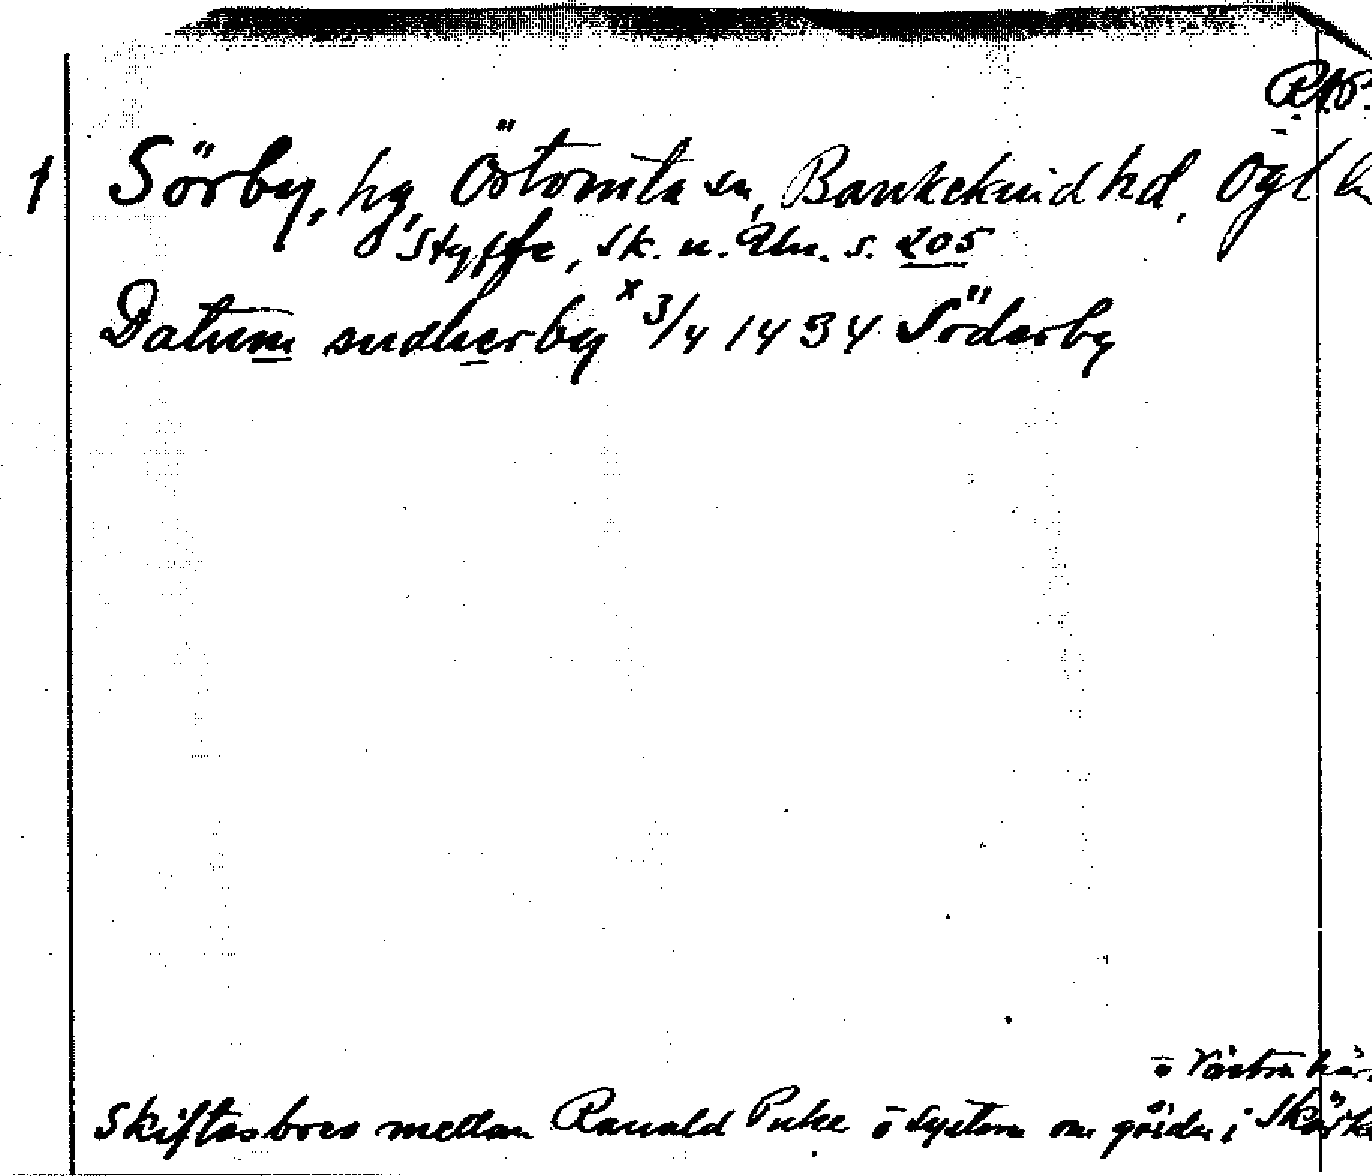 RAP.
1 Sörby, hg, Östomta sn, Bankekind hd, Ögl
Styffe, Sk. u. Un. s. 205
Datum sudherby x 3/4 1434 Söderby
Västra
Skiftesbrev mellan Ranald Puke o system om gårdar i